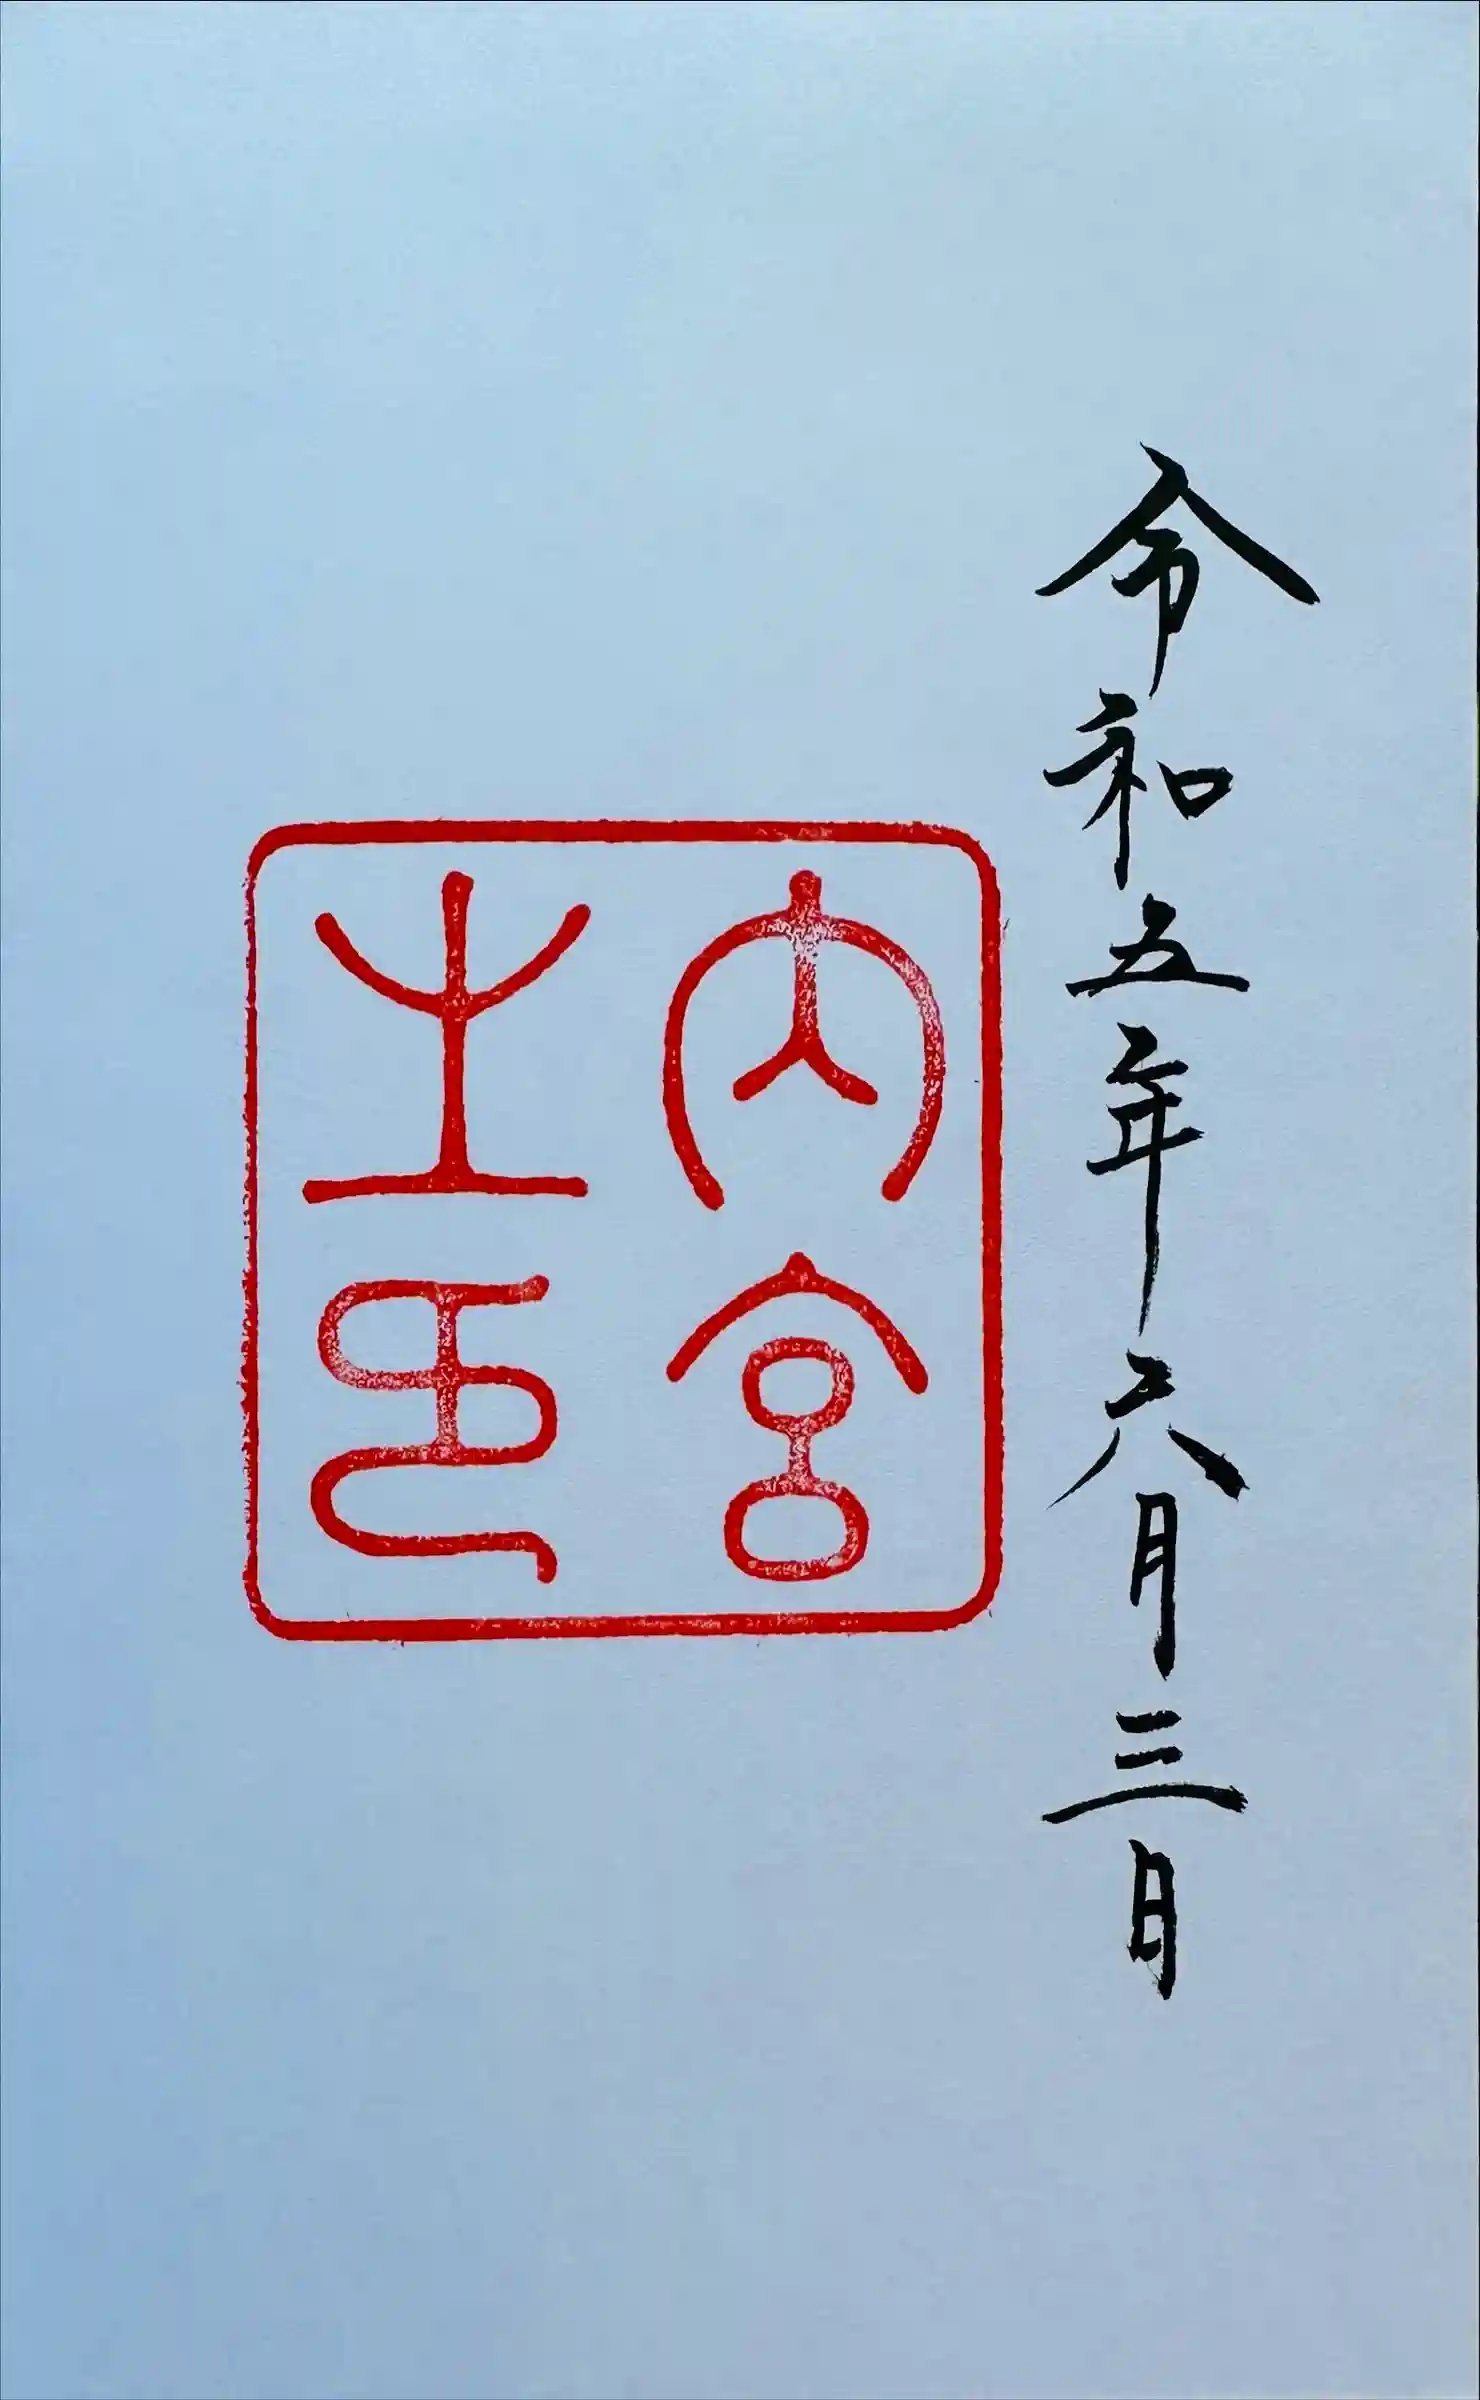 令和五年六月三日
内宮
之印